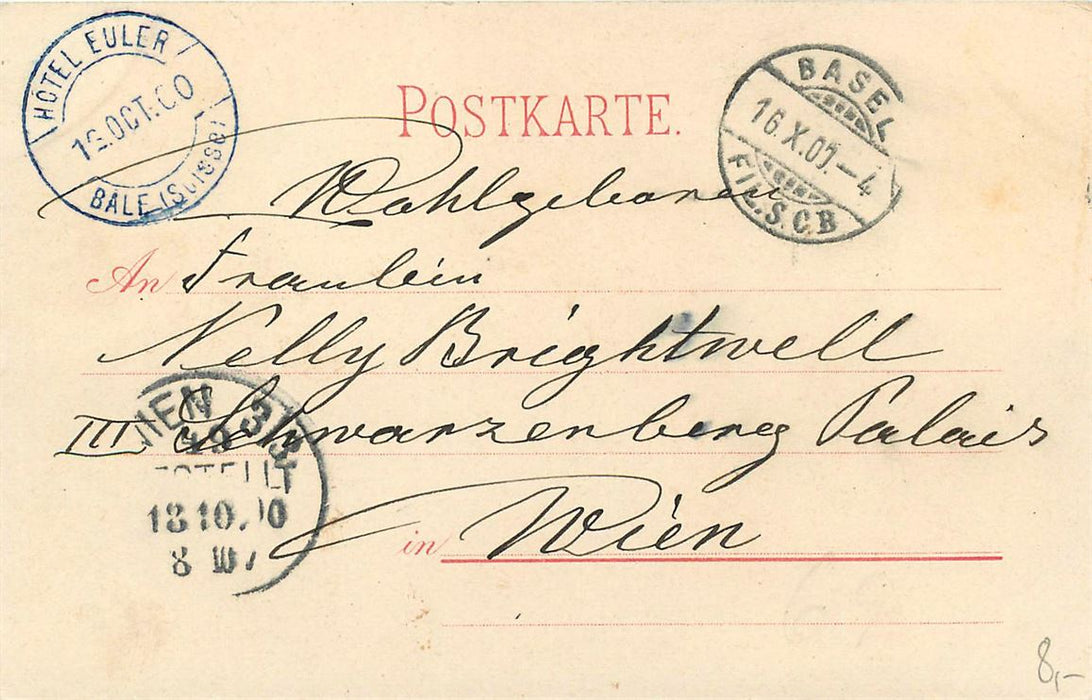 HÔTEL EULER
OCT.00
BALE (SUISSE)
BASEL
16.X.00.–4
FIL.S.C.B
POSTKARTE.
Wohlgeboren
An Fraulein
Nelly Brightwell
III Schwarzenberg Palais
in Wien
WIEN 3/3
BESTELLT
18 10. 00
8
8,-